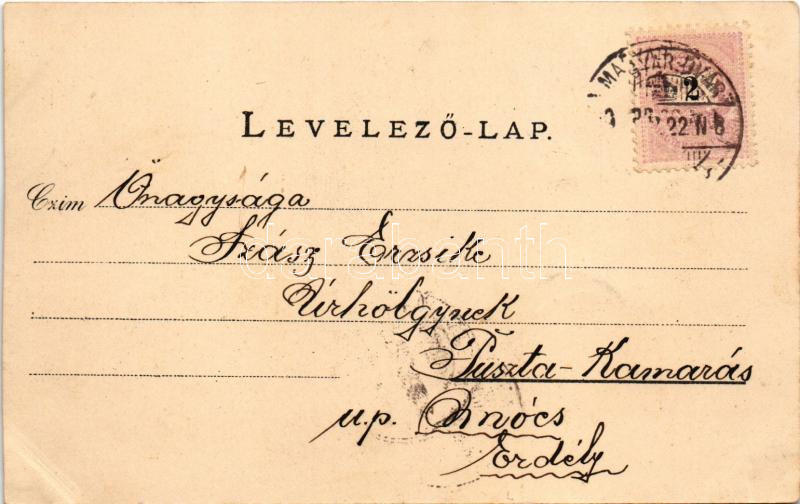 LEVELEZŐ-LAP.
MAGYAR-ÓVÁR
2
22 N 8
Czim Őnagysága
Szász Erzsike
Úrhölgynek
Puszta-Kamarás
u.p.
Erdély
darabanth